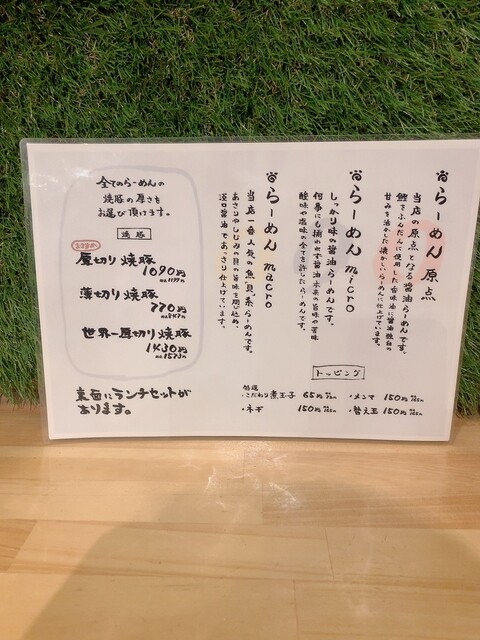 らーめん 原点
当店の原点となる醤油らーめんです。
鰹をふんだんに使用した香味油に醤油独自の
甘みを活かした懐かしいらーめんに仕上げています。
らーめん micro
しっかり味の醤油らーめんです。
何事にも捕われず醤油本来の旨味や苦味
酸味や塩味の全てを許したらーめんです。
らーめん macro
当店一番人気の魚貝系らーめんです。
あさりやしじみの貝の旨味を閉じ込め、
淡口醤油であっさり仕上げています。
トッピング
・こだわり煮玉子 65円
・メンマ 150円
・ネギ 150円
・替え玉 150円
全てのらーめんの
焼豚の厚さを
お選び頂けます。
焼豚
厚切り焼豚
1090円
薄切り焼豚
770円
世界一厚切り焼豚
1430円
裏面にランチセットが
あります。